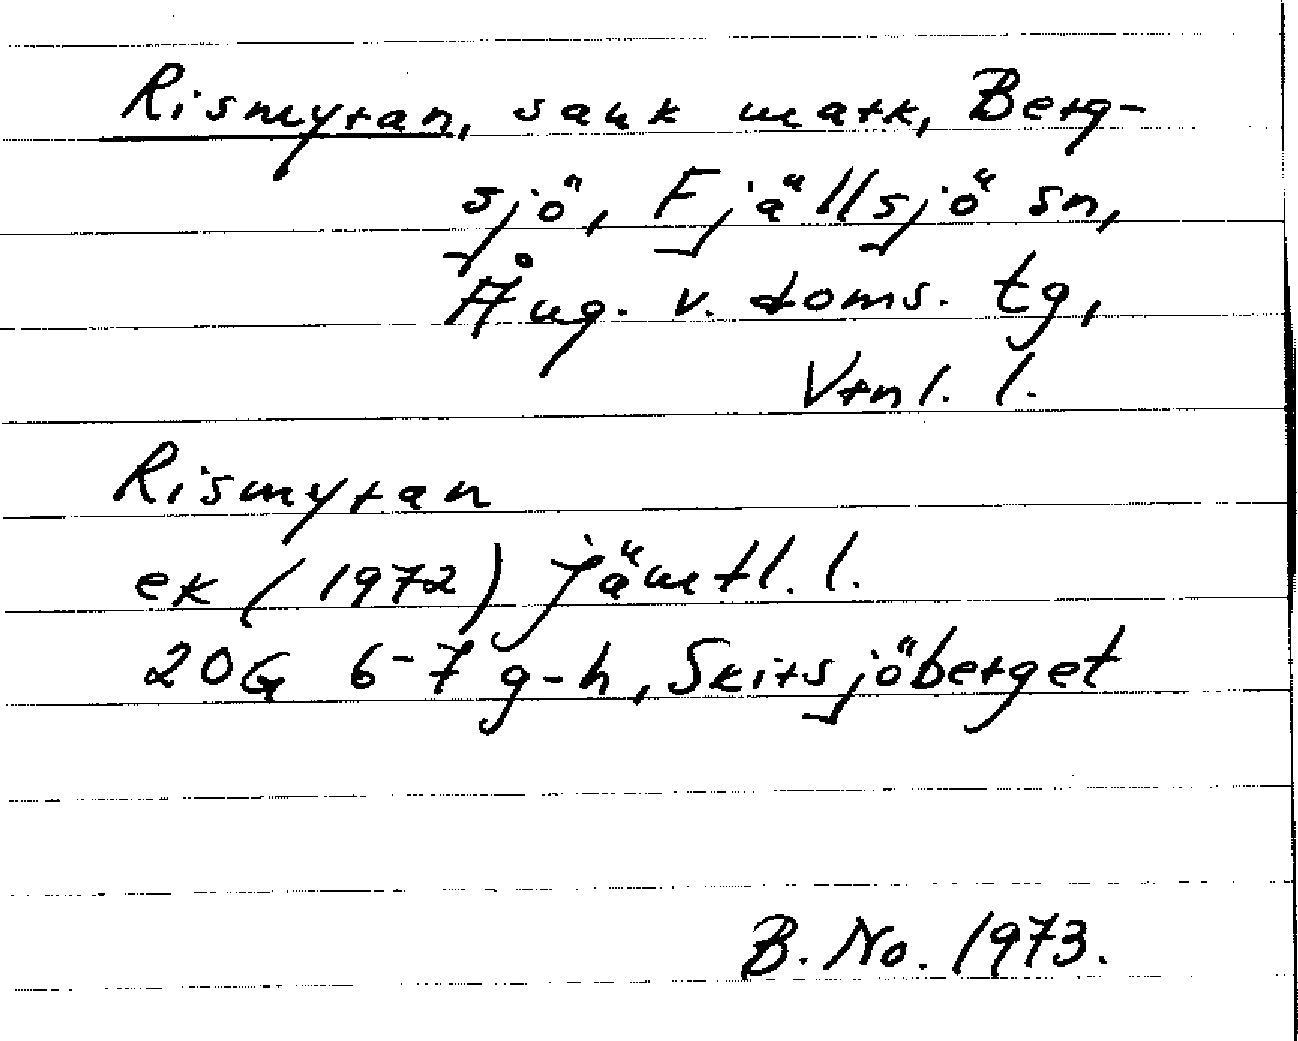 Rismyran, sank mark, Berg-
sjö, Fjällsjö sn,
Ång. v. doms. tg,
Vrnl. l.
Rismyran
ek (1972) Jämtl. l.
20G 6-7 g-h, Skirsjöberget
B. No. 1973.